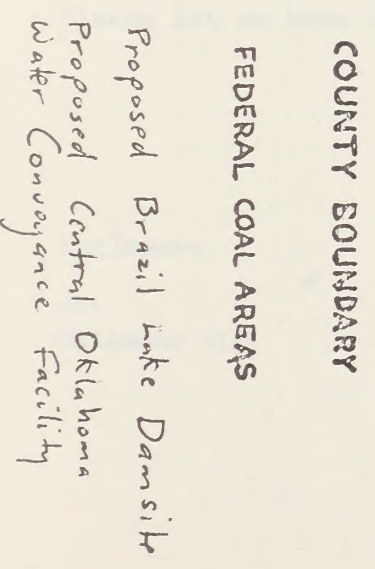 COUNTY BOUNDARY
FEDERAL COAL AREAS
Proposed Brazil Lake Damsite
Proposed Central Oklahoma
Water Conveyance Facility